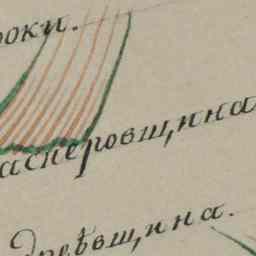 роки.
асперовщина
древщина.